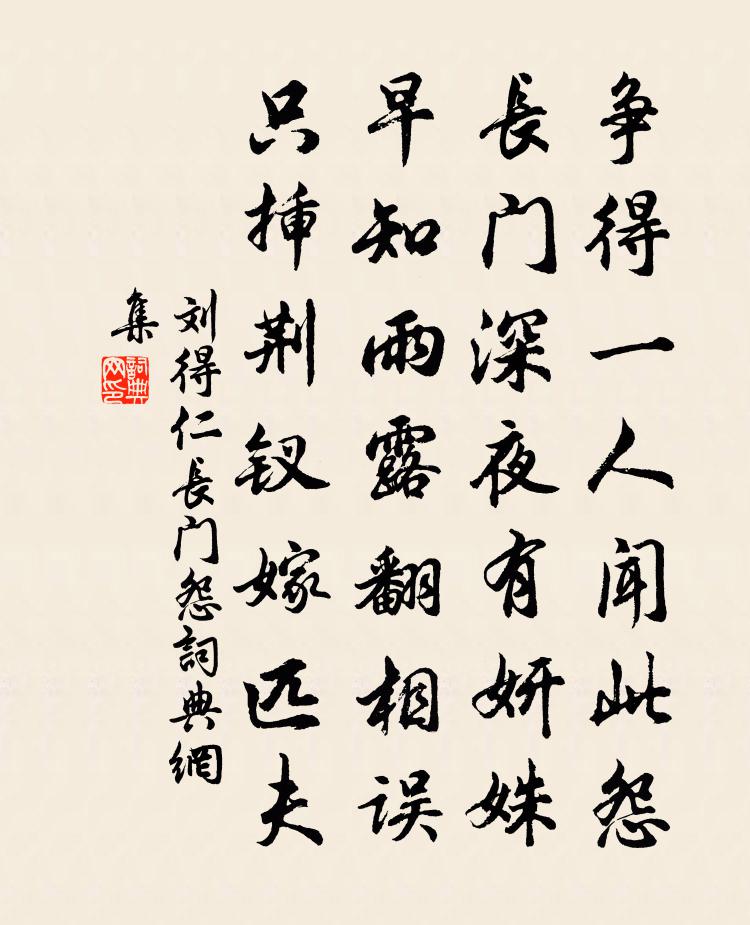 争得一人闻此怨
長门深夜有妍姝
早知雨露翻相误
只挿荆钗嫁匹夫
刘得仁長门怨詞典網
集
詞典
网印